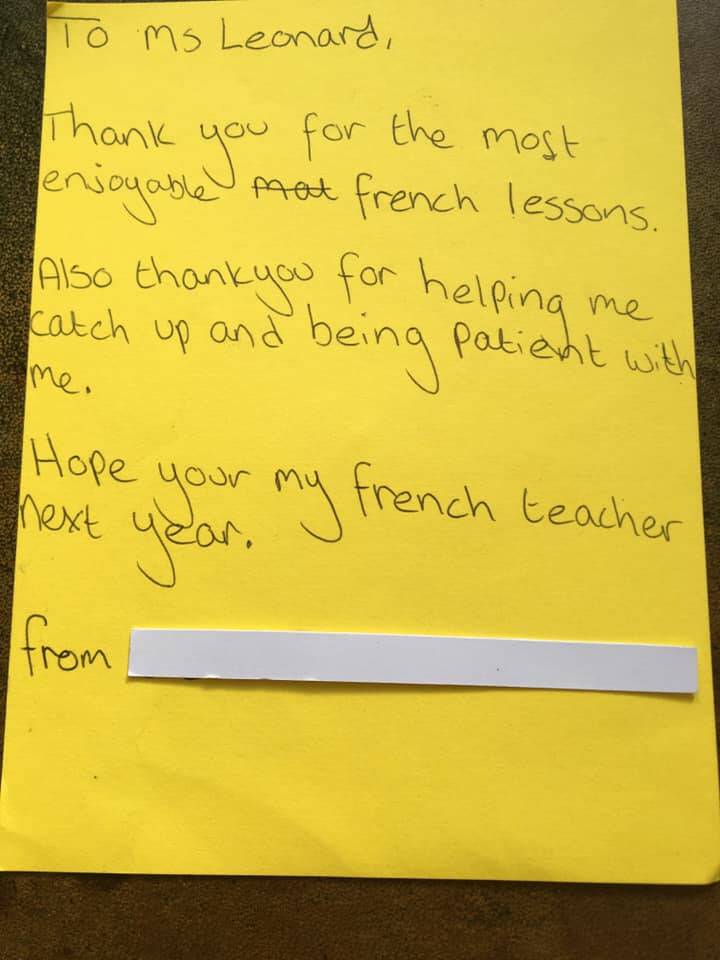 To Ms Leonard,
Thank you for the most
enjoyable mat french lessons.
Also thankyou for helping me
catch up and being patient with
me.
Hope your my french teacher
next year.
from